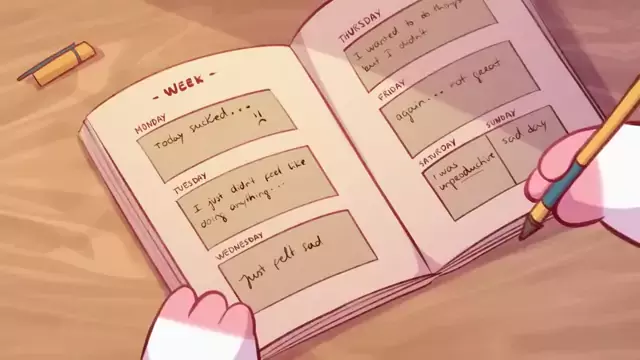 - WEEK -
MONDAY
Today sucked...
TUESDAY
I just didn't feel like
doing anything...
WEDNESDAY
Just felt sad
THURSDAY
I wanted to do things
but I didn't
FRIDAY
again... not great
SATURDAY
I was
unproductive
SUNDAY
sad day